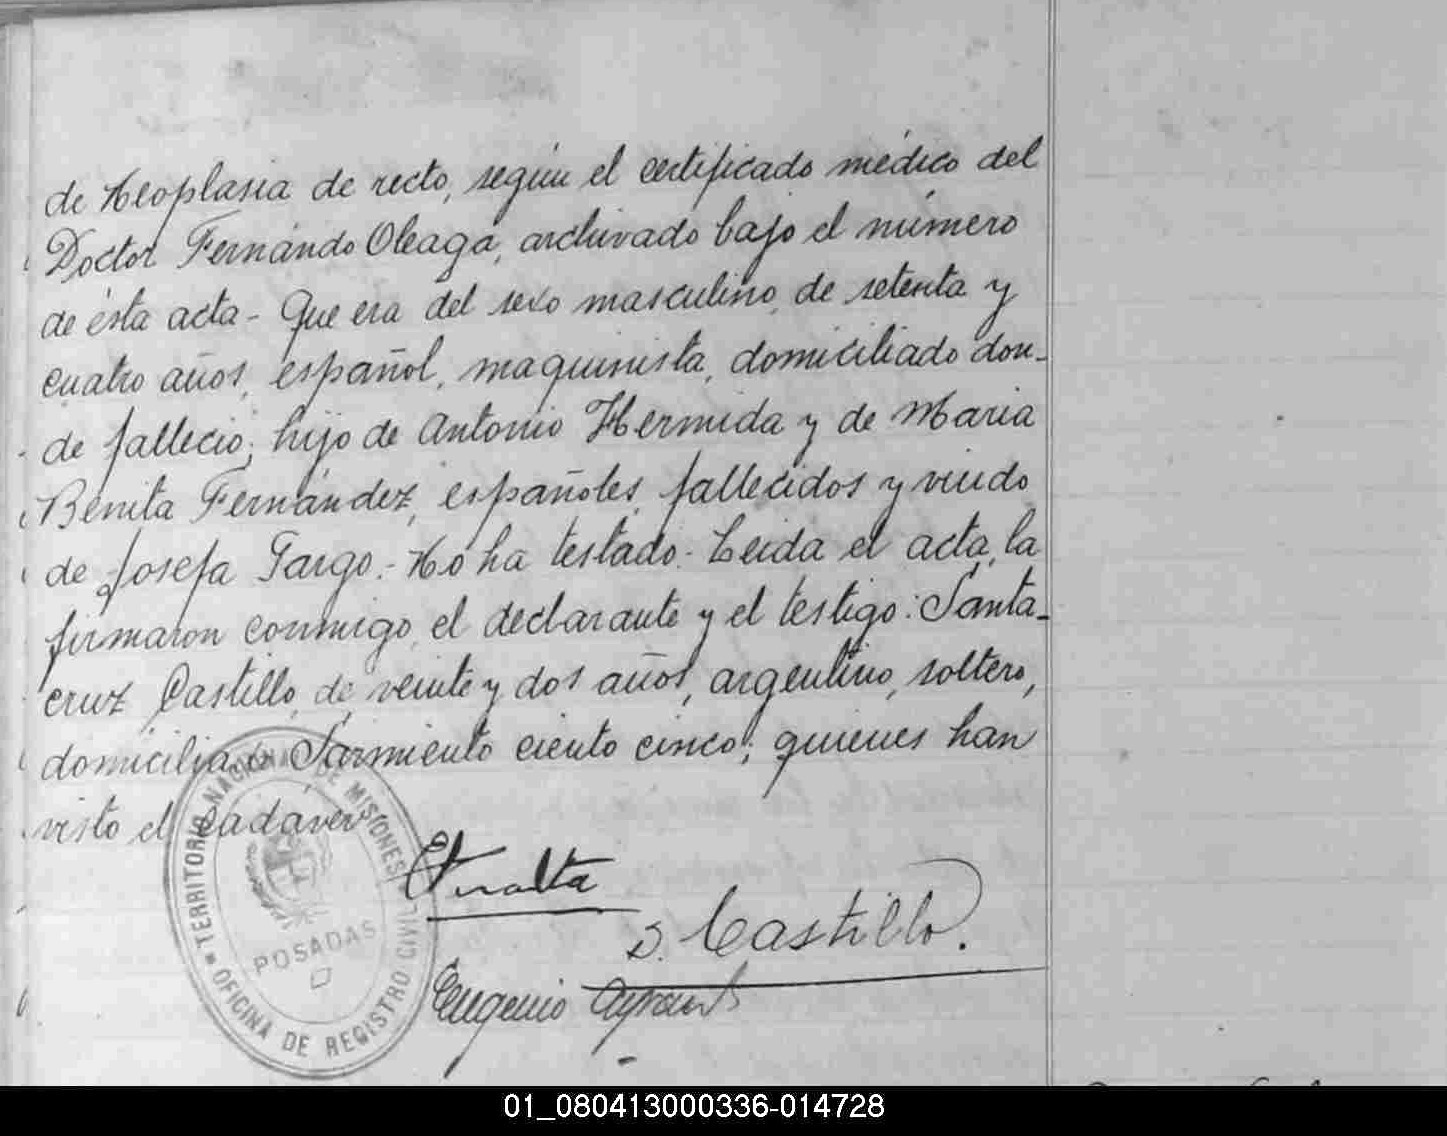 de Neoplasia de recto, según el certificado médico del
Doctor Fernándo Oleaga, archivado bajo el número
de ésta acta - Que era del sexo masculino, de setenta y
cuatro años, español, maquinista, domiciliado don-
de falleció; hijo de Antonio Hermida y de Maria
Benita Fernández, españoles, fallecidos y viudo
de Josefa Fargo.- No ha testado.- Leida el acta, la
firmaron conmigo, el declarante y el testigo: Santa-
cruz Castillo, de veinte y dos años, argentino, soltero,
domiciliado Sarmiento ciento cinco; quienes han
visto el cadáver
Peralta
S. Castillo.
Eugenio
TERRITORIO NACIONAL DE MISIONES
POSADAS
OFICINA DE REGISTRO CIVIL
01_080413000336-014728